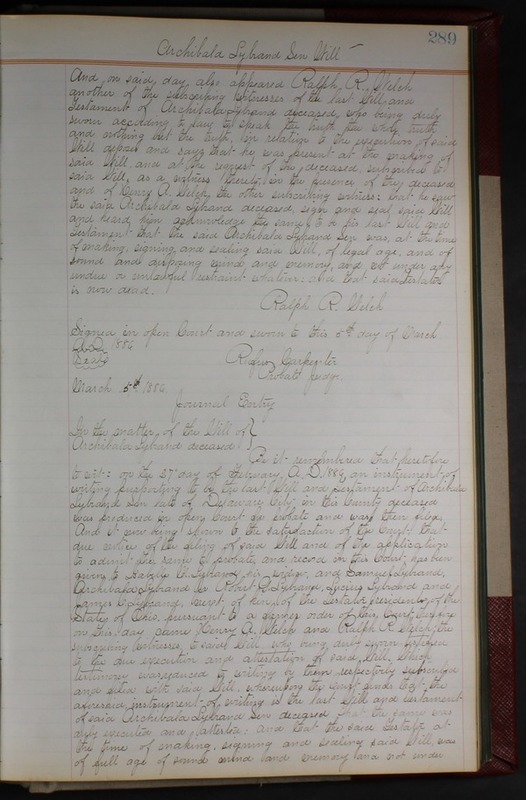 289
Archibald Lybrand Sen Will
And on said day also appeared Ralph R. Welch
another of the subscribing witnesses of the last Will and
Testament of Archibald Lybrand deceased, who being duly
sworn according to law to speak the truth the whole truth
and nothing but the truth, in relation to the execution of said
Will deposes and says that he was present at the making of
said Will, and at the request of the deceased, subscribed to
said Will, as a witness thereto, in the presence of the deceased
and of Henry A. Welch the other subscribing witness: that he saw
the said Archibald Lybrand deceased, sign and seal said Will
and heard him acknowledge the same to be his last Will and
Testament that the said Archibald Lybrand Sen was, at the time
of making, signing, and sealing said Will, of legal age, and of
sound and disposing mind and memory, and not under any
undue or unlawful restraint whatever: and that said Testator
is now dead.
Ralph R. Welch
Signed in open Court and sworn to this 5th day of March
A.D. 1886
Seal
Rufus Carpenter
Probate Judge,
March 5th 1886
Journal Entry
In the matter of the Will of
Archibald Lybrand deceased
Be it remembered that heretofore
to wit: on the 27 day of February, A.D. 1886, an instrument of
writing purporting to be the last Will and testament of Archibald
Lybrand Sen late of Delaware City in this County deceased
was produced in open Court for probate and was then filed.
And it now being shown to the satisfaction of the Court that
due notice of the filing of said Will and of the application
to admit the same to probate, and record in this Court, has been
given to Lybrand, his widow, and Samuel Lybrand,
Archibald Lybrand Jr Robert Lybrand, Lybrand and
James Lybrand, next of kin of the Testator residents of the
State of Ohio, pursuant to a former order of this Court, therefore
on this day came Henry A. Welch and Ralph R. Welch, the
subscribing witnesses to said Will, who being duly sworn testified
to the due execution and attestation of said Will, which
testimony was reduced to writing by them respectively subscribed
and filed with said Will, whereupon the Court finds that the
aforesaid instrument of writing is the last Will and testament
of said Archibald Lybrand Sen deceased, that the same was
duly executed and attested: and that the said Testator at
the time of making, signing and sealing said Will, was
of full age of sound mind and memory and not under